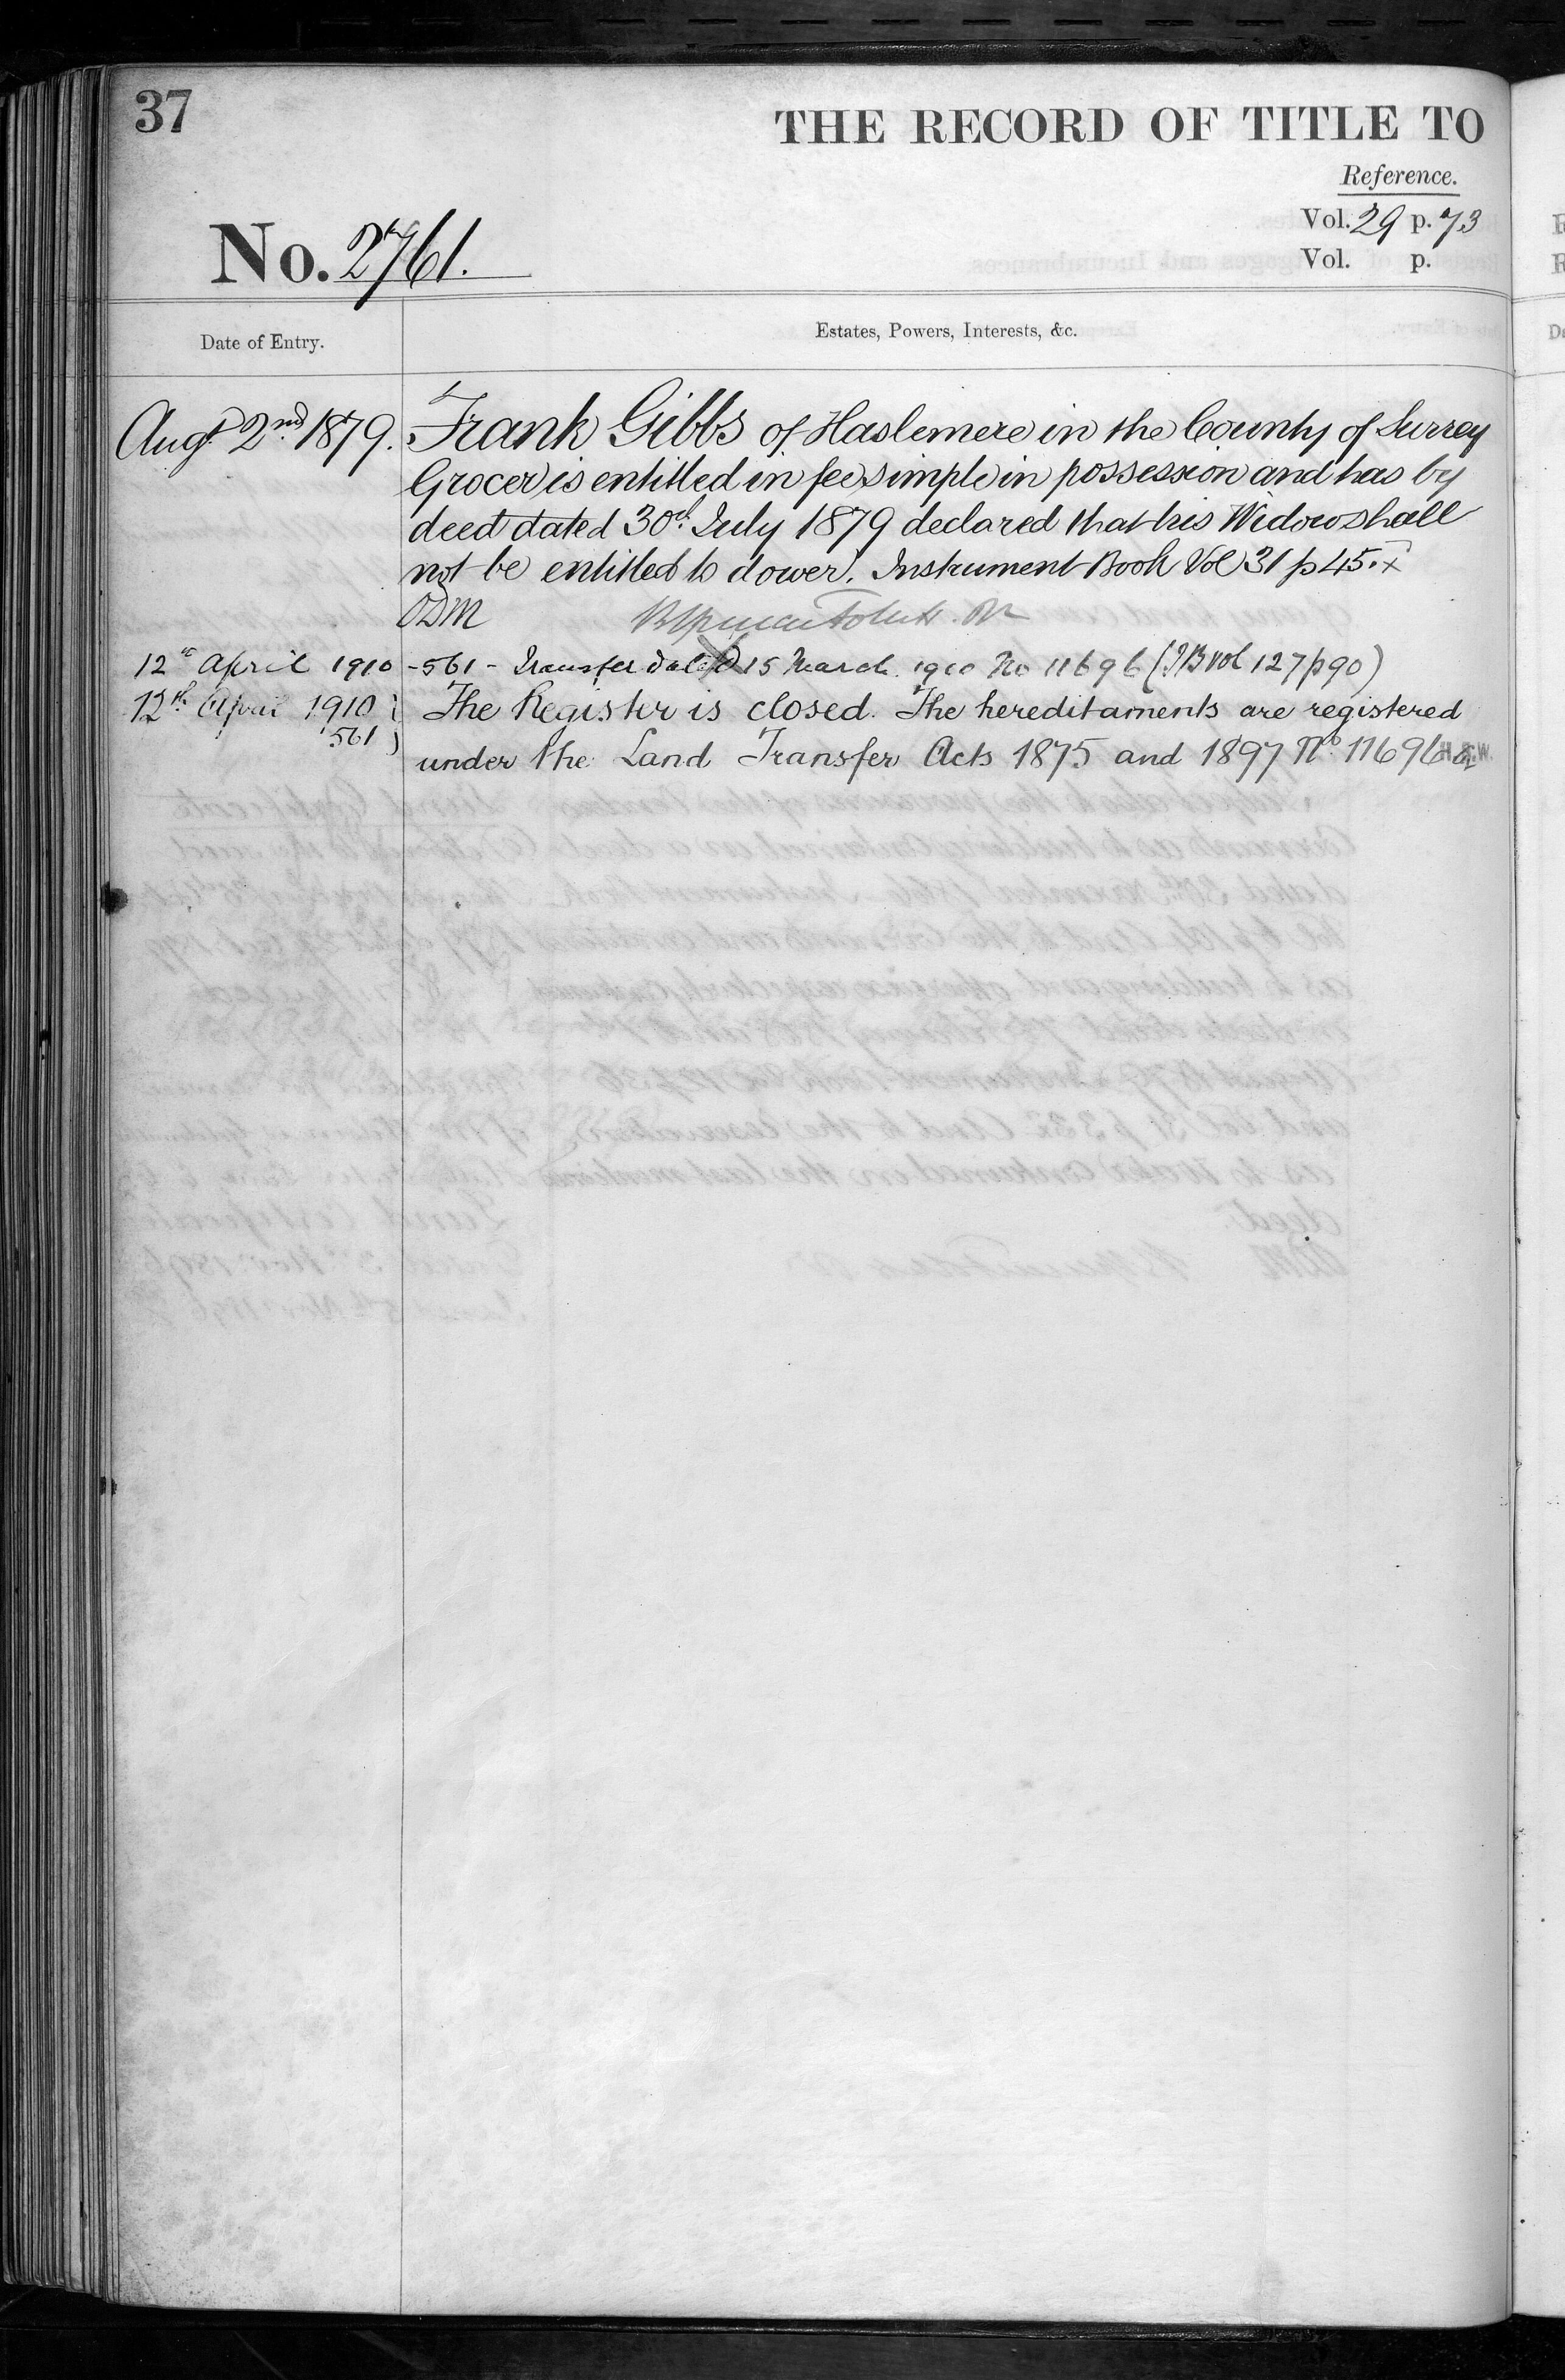 37
THE RECORD OF TITLE TO
Reference.
Vol. 29 p. 73
No. 2761.
Vol. p.
Date of Entry.
Estates, Powers, Interests, &c.
Augt 2nd 1879. Frank Gibbs of Haslemere in the County of Surrey
Grocer is entitled in fee simple in possession and has by
deed dated 30th July 1879 declared that his Widow shall
not be entitled to dower. Instrument Book Vol 31 p 45. x
ODM
12th April 1910 - 561 - Transfer dated 15 March 1910 No 11696 (IB vol 127 p 90)
12th April 1910 } The Register is closed. The hereditaments are registered
561 } under the Land Transfer Acts 1875 and 1897 No. 11696